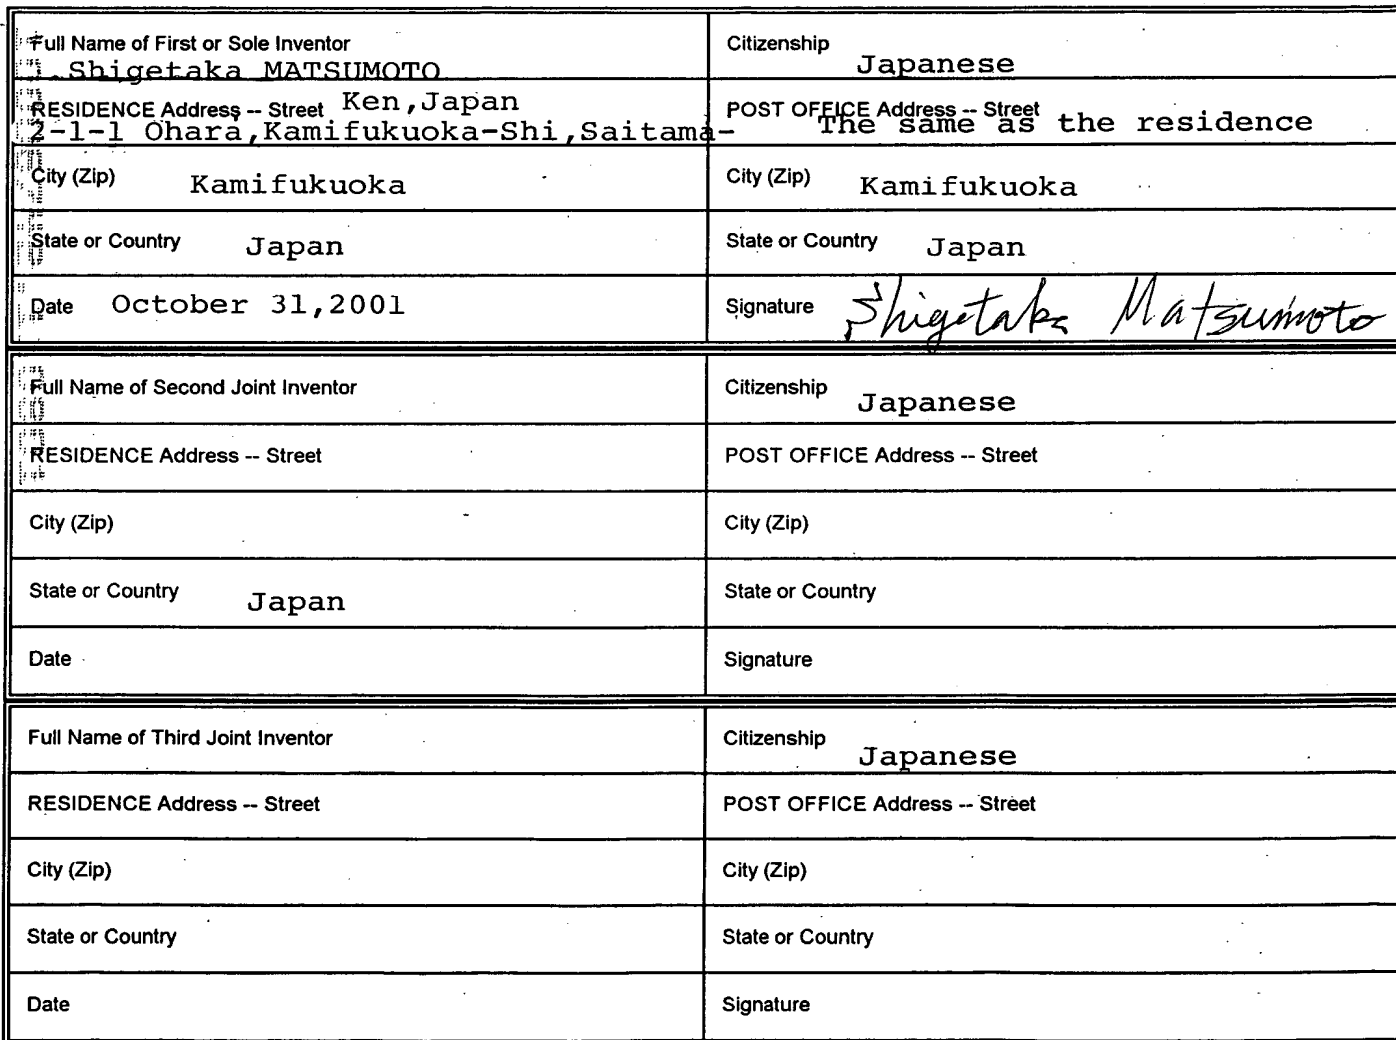 Full Name of First or Sole Inventor
Shigetaka MATSUMOTO
Citizenship
Japanese
RESIDENCE Address -- Street Ken,Japan
2-1-1 Ohara,Kamifukuoka-Shi,Saitama-
POST OFFICE Address -- Street
The same as the residence
City (Zip) Kamifukuoka
City (Zip) Kamifukuoka
State or Country Japan
State or Country Japan
Date October 31,2001
Signature Shigetaka Matsumoto
Full Name of Second Joint Inventor
Citizenship
Japanese
RESIDENCE Address -- Street
POST OFFICE Address -- Street
City (Zip)
City (Zip)
State or Country Japan
State or Country
Date
Signature
Full Name of Third Joint Inventor
Citizenship
Japanese
RESIDENCE Address -- Street
POST OFFICE Address -- Street
City (Zip)
City (Zip)
State or Country
State or Country
Date
Signature